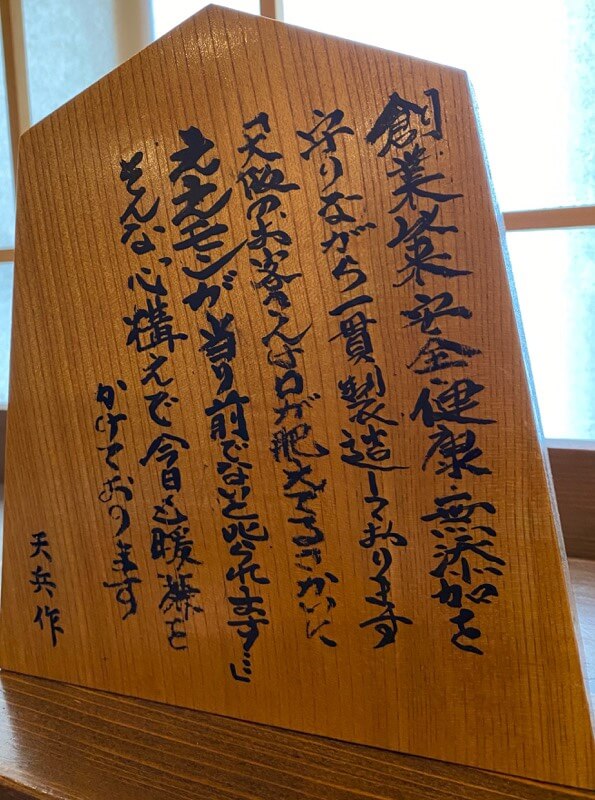 創業以来安全健康・無添加を
守りながら一貫製造しております
「大阪のお客さんは口が肥えてるさかいに
ええモンが当り前でないと叱られます…」
そんな心構えで今日も暖簾を
かけております
天兵作